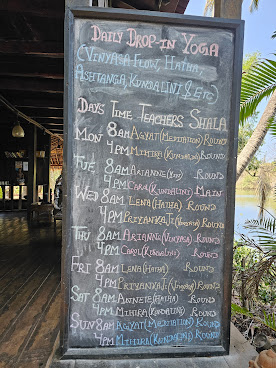 DAILY DROP-IN YOGA
(VINYASA FLOW, HATHA,
ASHTANGA, KUNDALINI & ETC)
DAYS TIME TEACHERS SHALA
MON 8AM AGYAT (MEDITATION) ROUND
4PM MIHIRA (KUNDALINI) ROUND
TUE 8AM ARIANNE ROUND
4PM CAROL (KUNDALINI) MAIN
WED 8AM LENA (HATHA) ROUND
4PM PRIYANKAJI ROUND
THU 8AM ARIANNE (VINYASA) ROUND
4PM CAROL (KUNDALINI) ROUND
FRI 8AM LENA (HATHA) ROUND
4PM PRIYANKAJI ROUND
SAT 8AM ANNETE (HATHA) ROUND
4PM MIHIRA (KUNDALINI) ROUND
SUN 8AM AGYAT (MEDITATION) ROUND
4PM MIHIRA (KUNDALINI) ROUND